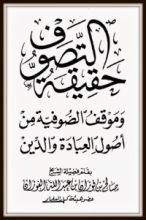 حقيقة التصوف
وموقف الصوفية من
أصول العبادة والدين
بقلم فضيلة الشيخ
صالح بن فوزان بن عبد الله الفوزان
عضو هيئة كبار العلماء